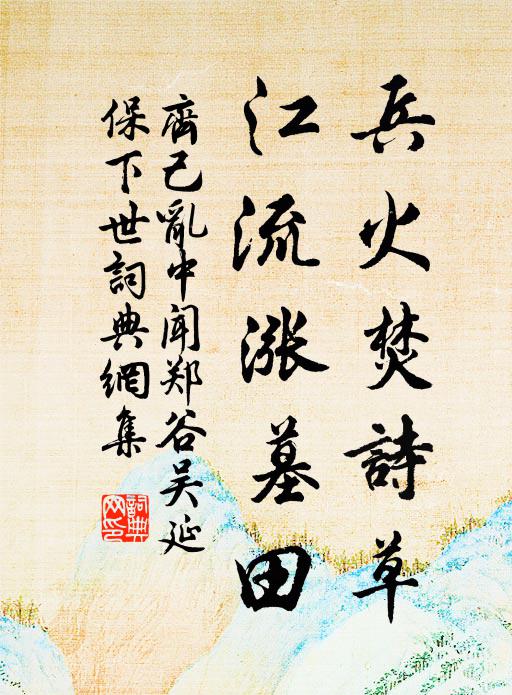 兵火焚詩草
江流漲墓田
齊己亂中闻郑谷吴延
保下世詞典網集
詞典网印